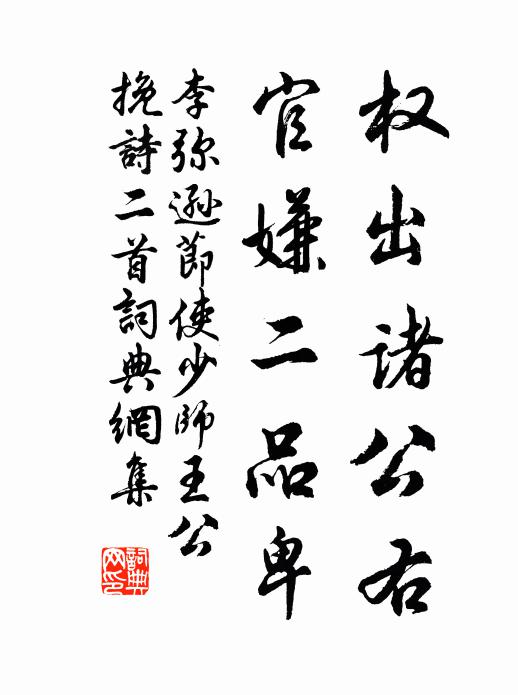 权出诸公右
官嫌二品卑
李弥逊節使少師王公
挽詩二首詞典網集
詞典網印